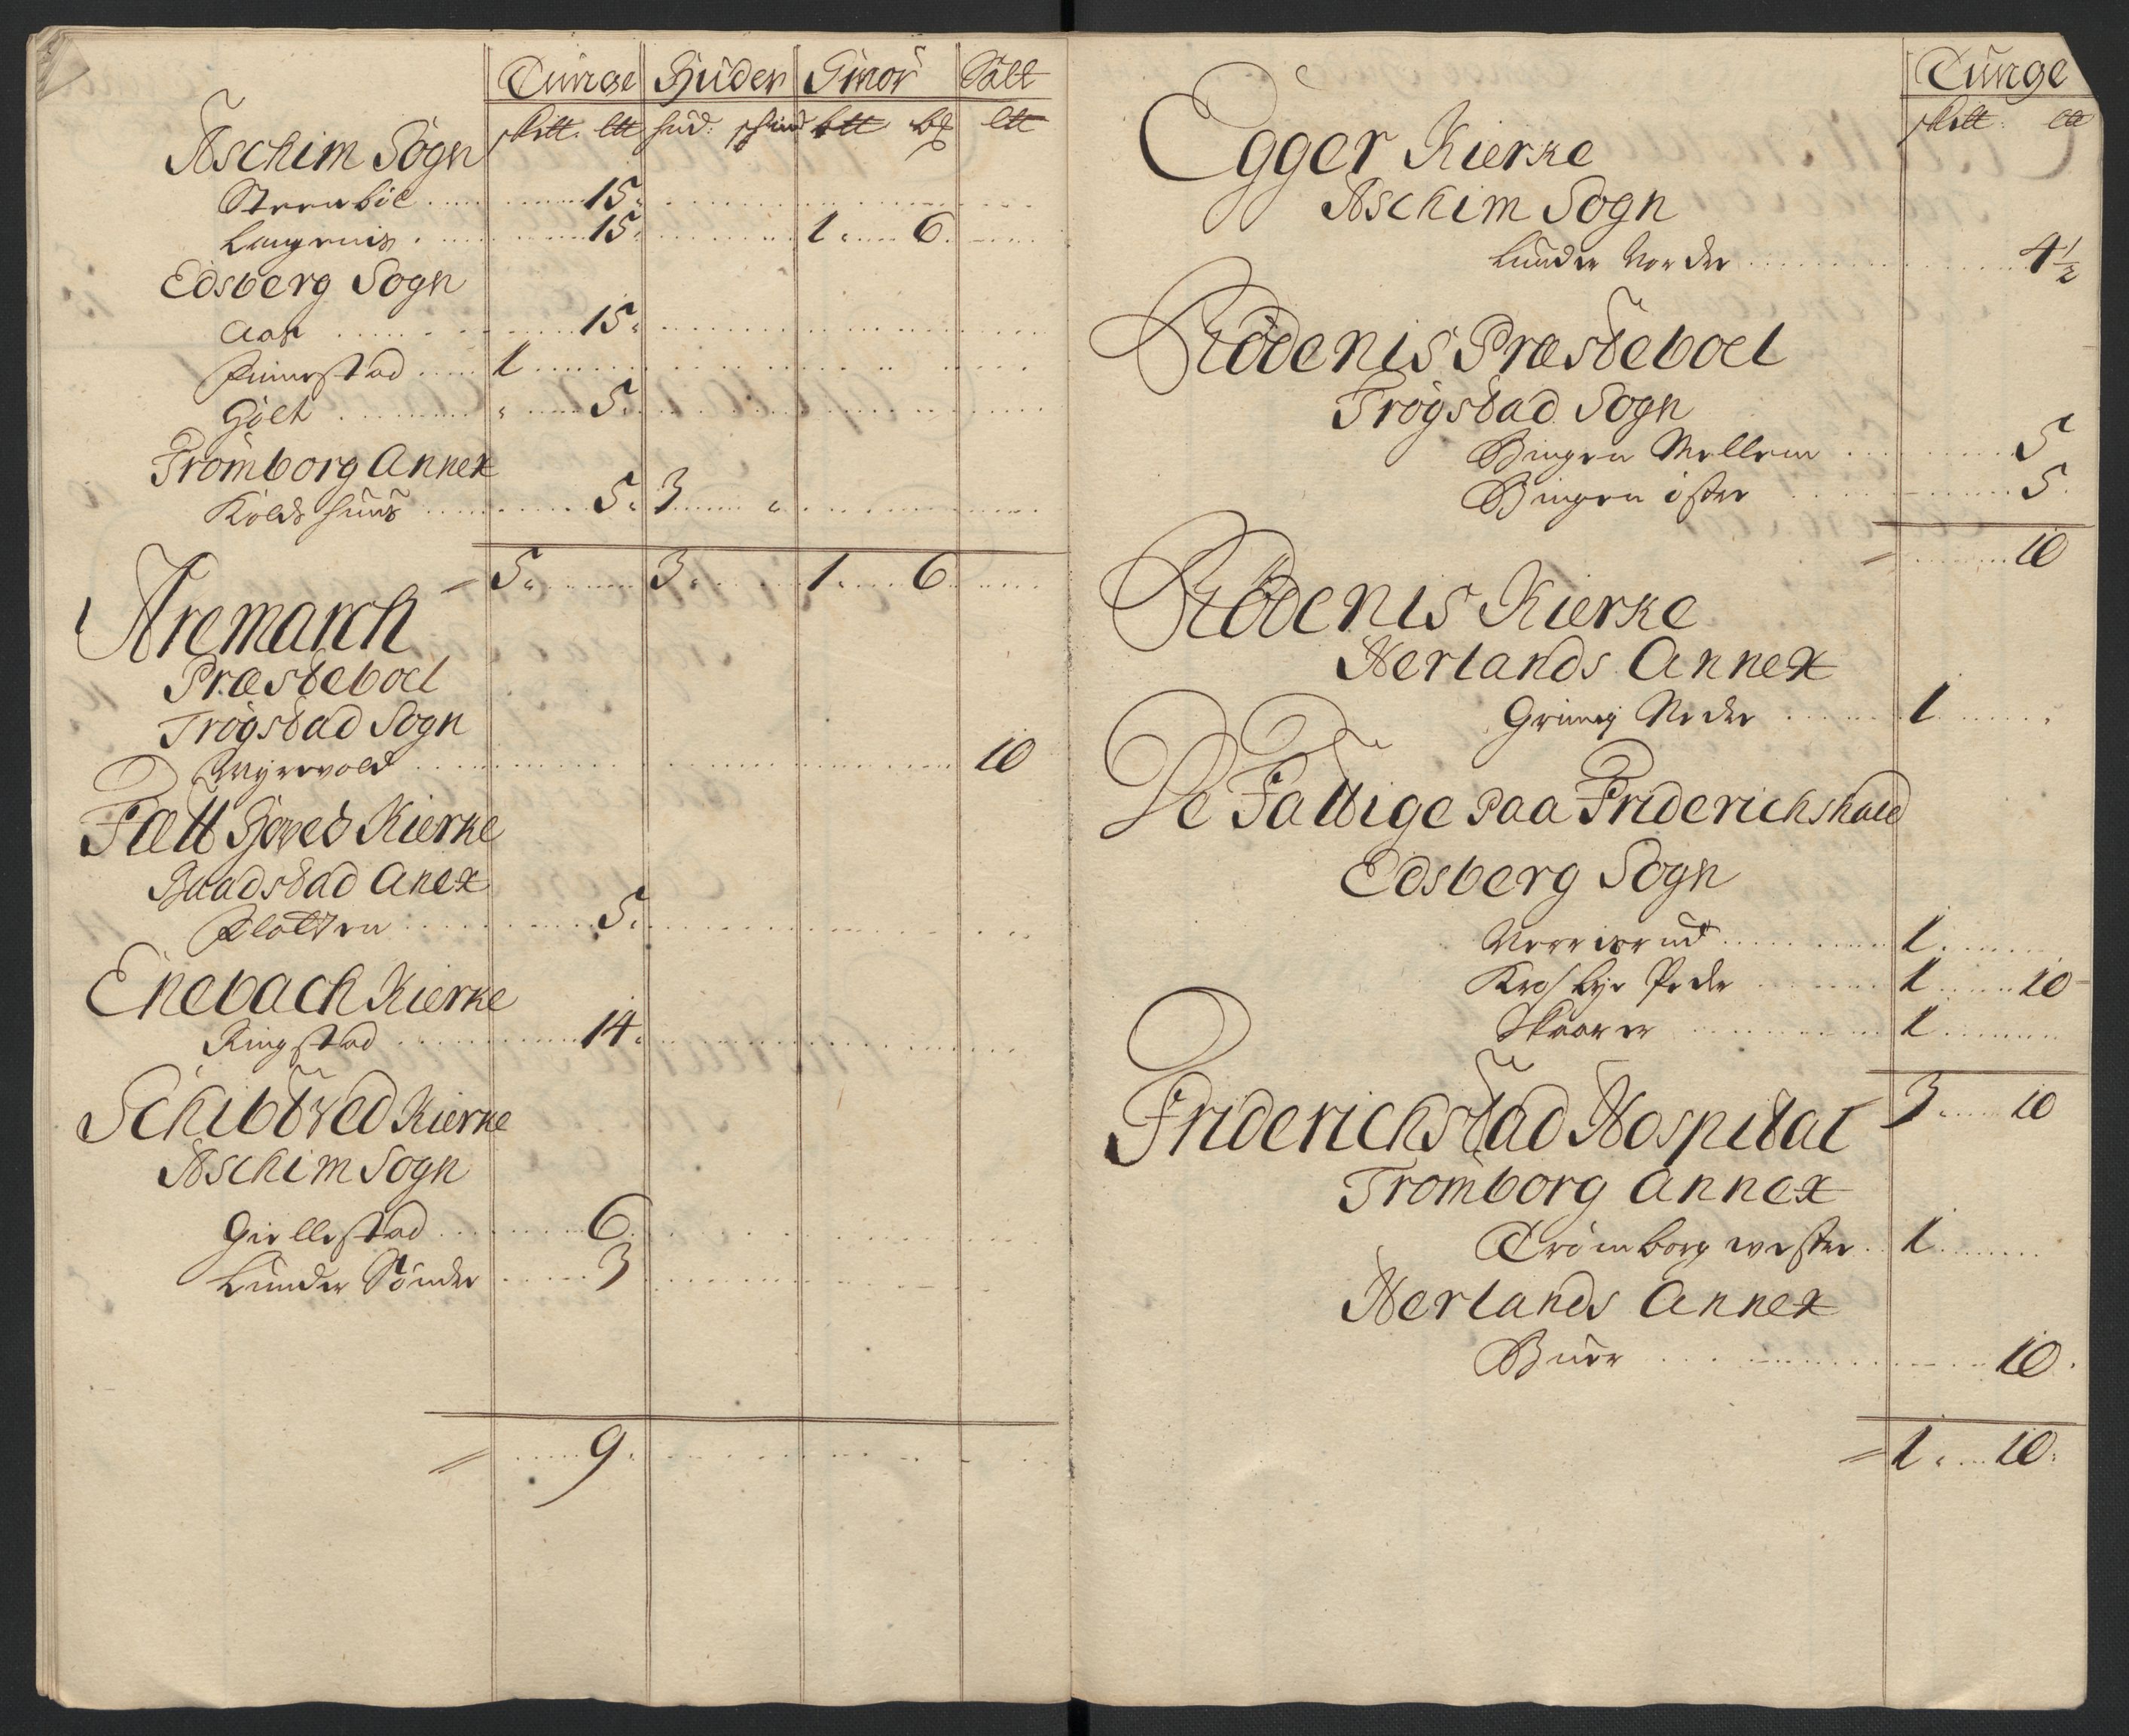 Tunge Huder Smör Salt
skitt. ltt hud: skind btt bℓ ltt
Aschim Sogn
Steenböl 15
Langenis 15 1 6
Edsberg Sogn
Aas 15
Finnestad 1
Gölt 5
Trömborg Annex
Koldshuus 5 3
5 3 1 6
Aremarch
Præsteboel
Trögstad Sogn
Myrevold 10
Fæll Hoved Kierke
Baadstad Anex
Slotten 5
Enebach Kierke
Ringstad 14
Schibtved Kierke
Aschim Sogn
Giellestad 6
Lunder Sönder 3
9
Tunge
skitt. ltt
Egger Kierke
Aschim Sogn
Lunder Norder 4 1/2
Rödenis Præsteboel
Trögstad Sogn
Bingen Mellem 5
Bingen öster 5
10
Rödenis Kierke
Herlands Annex
Grimeg Neder 1
De Fattige paa Friderichshald
Edsberg Sogn
1
Krosbye Peder 1 10
Skaarer 1
3 10
Friderichstad Hospital
Tromborg Annex
Trömborg wester 1
Herlands Annex
Buer 10
1 10